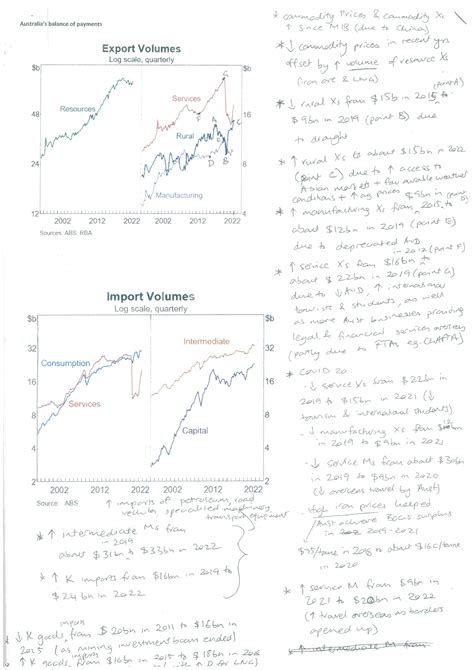 Australia's balance of payments
Export Volumes
Log scale, quarterly
$b
$b
Resources
Services
Rural
Manufacturing
48
24
12
16
8
4
2002
2012
2022
2002
2012
2022
Sources: ABS RBA
Import Volumes
Log scale, quarterly
$b
$b
Consumption
Services
Intermediate
Capital
32
16
8
4
2
32
16
8
4
2
2002
2012
2022
2002
2012
2022
Source: ABS
* commodity Prices & commodity Xs
↑ since M18 (due to China)
* ↓ commodity prices in recent yrs
offset by ↑ volume of resource Xs
(iron ore & LNG)
(point A)
* ↓ rural Xs from $15b in 2015 to
$9bn in 2019 (point B) due
to drought
* ↑ rural Xs to about $15bn in 2022
(point C) due to ↑ access to
Asian markets + favourable weather
conditions + ↑ ag prices
* ↑ manufacturing Xs from 2015 to
about $12bn in 2019 (point E)
due to depreciated AUD
in 2012 (point F)
* ↑ service Xs from $16bn
about $22bn in 2019 (point G)
due to ↓ AUD, ↑ international
tourists & students, as well
as more Aust businesses providing
legal & financial services overseas
(partly due to FTAs eg. ChAFTA)
* COVID 20
- ↓ service Xs from $22bn in
2019 to $15bn in 2021 (↓
tourism & international students)
- ↓ manufacturing Xs from
in 2019 to $9bn in 2021
- ↓ service Ms from about $30bn
in 2019 to $9bn in 2020
(↓ overseas travel by Aust)
- High iron prices helped
Aust achieve BOGS surplus
in 2019-2021
$75/tonne in 2018 to about $160/tonne
in 2020
* ↑ service M from $9bn in
2021 to $20bn in 2022
(↑ travel overseas as borders
opened up)
* ↑ intermediate M from
↑ imports of petroleum, road
vehicles, specialised machinery
transport equipment
* ↑ intermediate Ms from
in 2019
about $31bn to $33bn in 2022
* ↑ K imports from $16bn in 2019 to
$24bn in 2022
imports
↓ K goods, from $20bn in 2011 to $16bn in
2015 (as mining investment boom ended)
imports
↑ K goods, from $15bn in 2015 to $18bn in 2018